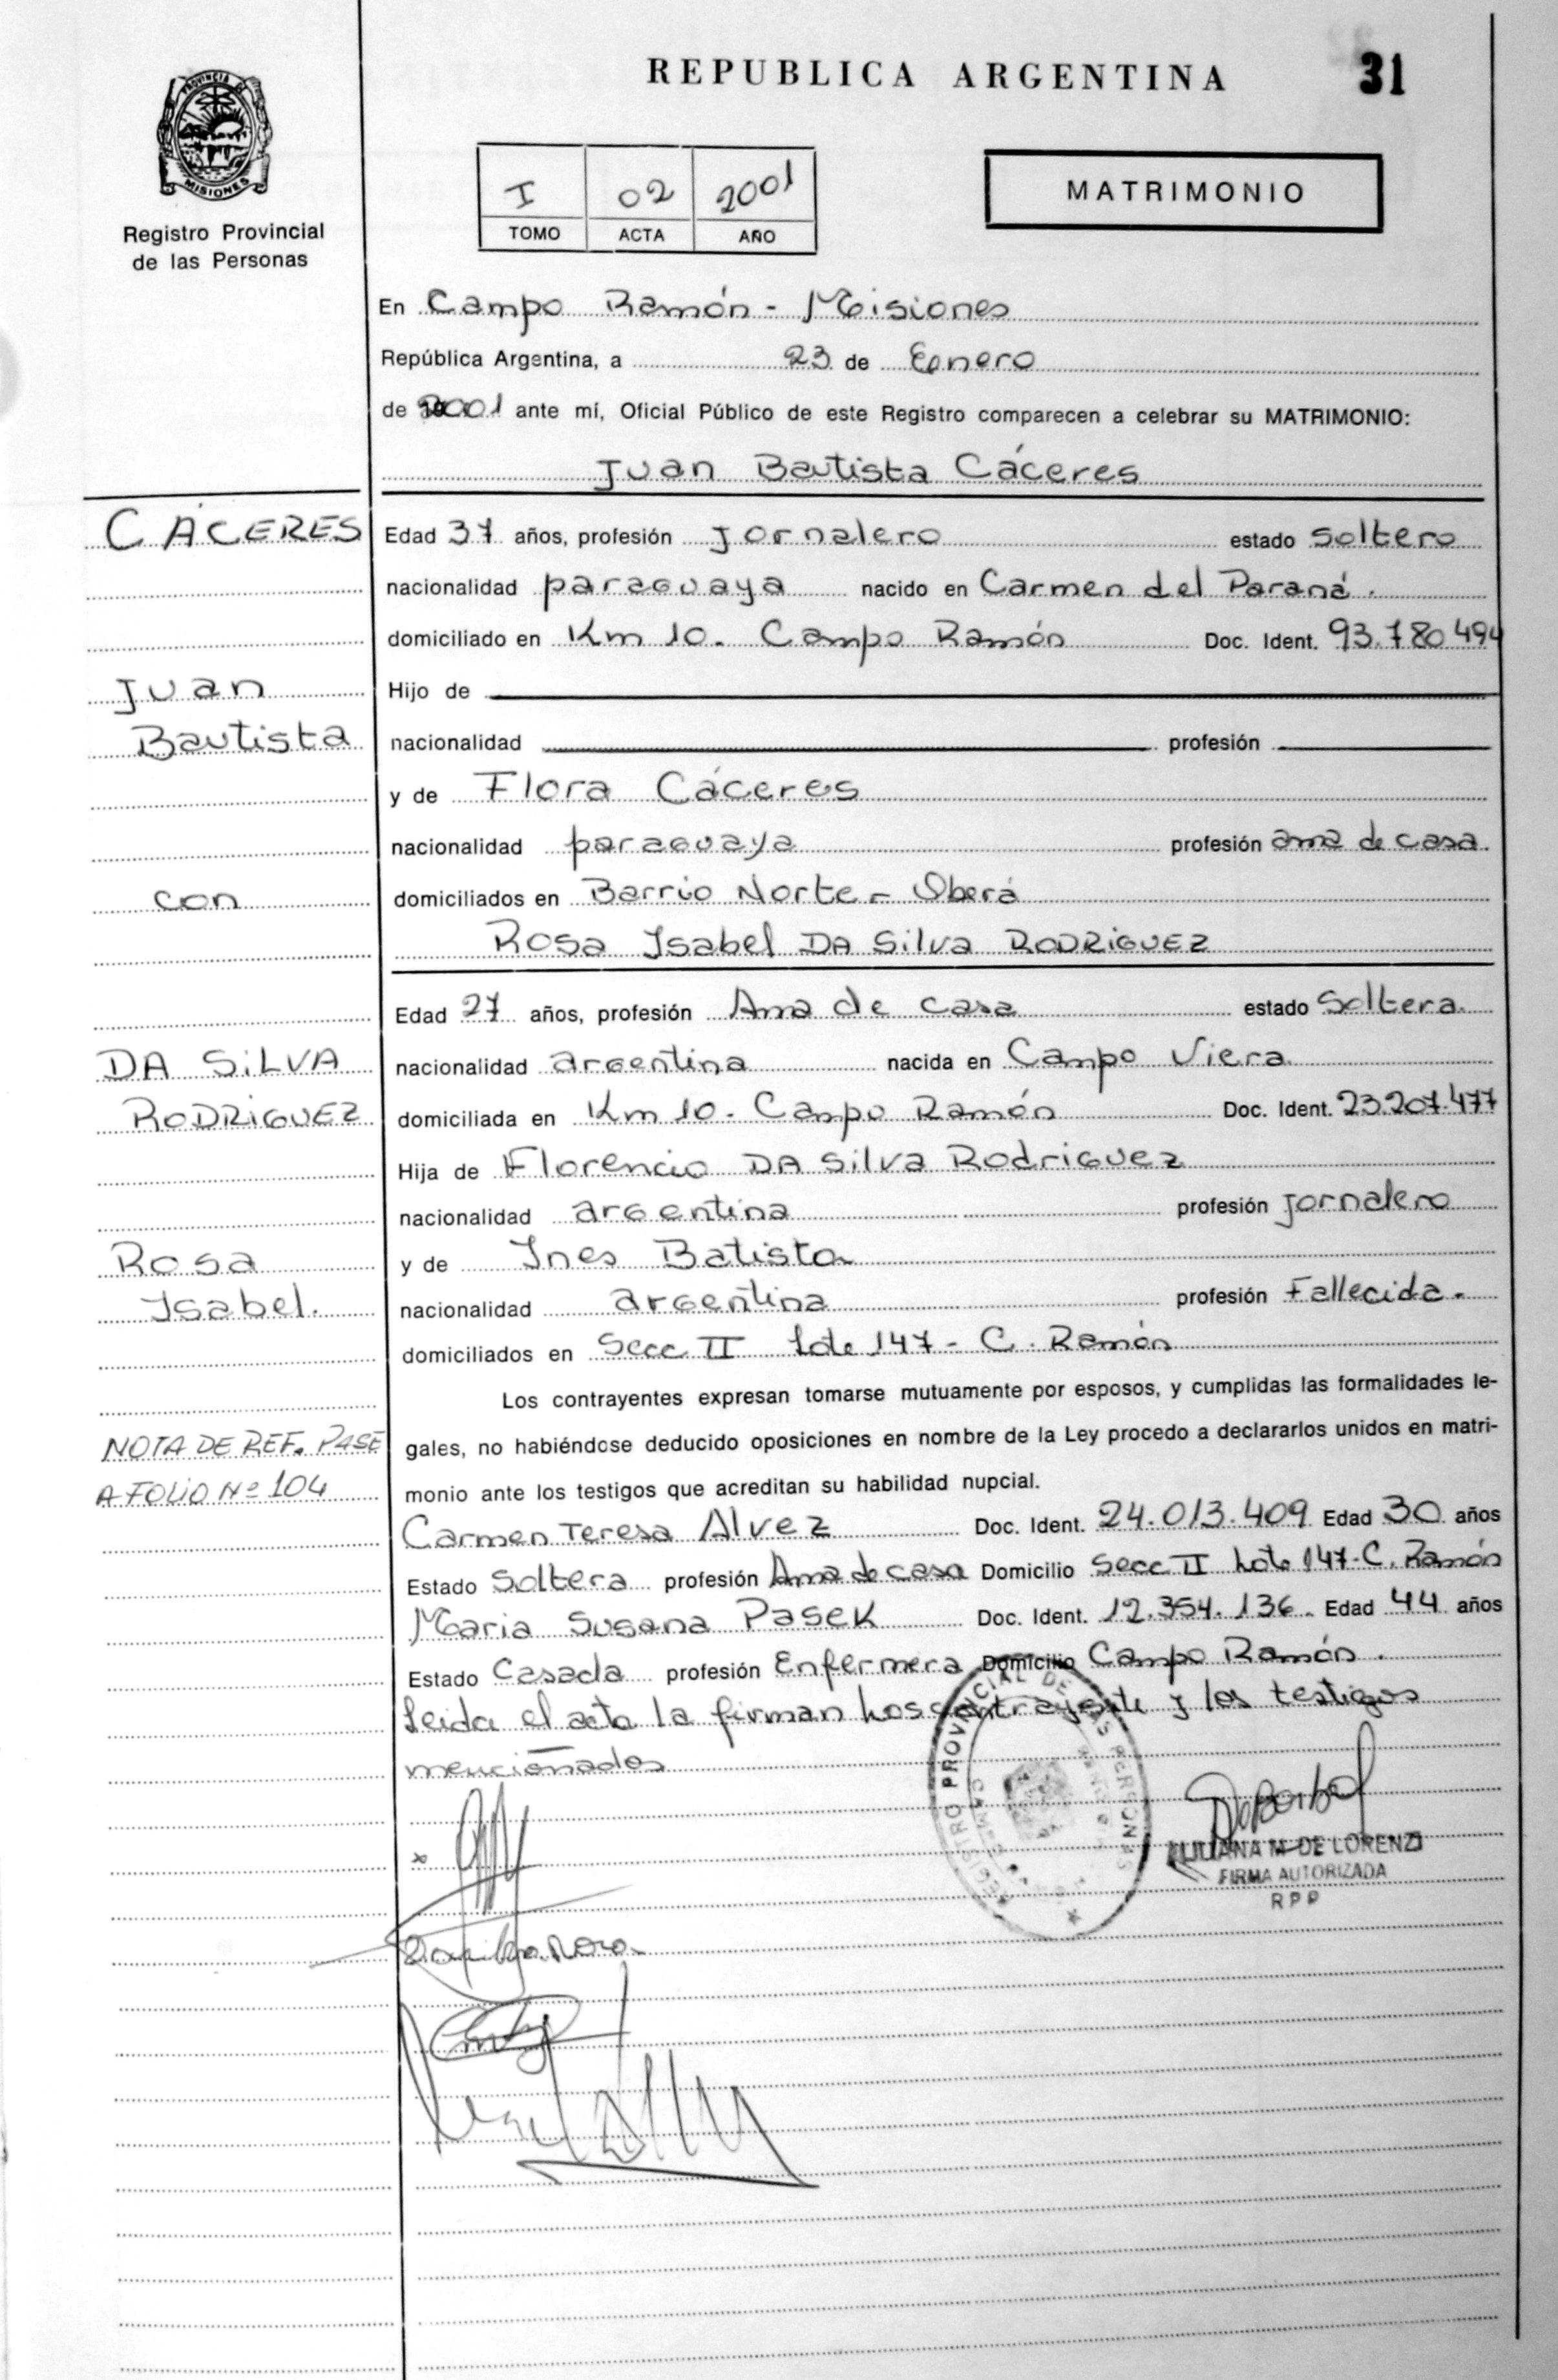 REPUBLICA ARGENTINA 31
PROVINCIA DE MISIONES
Registro Provincial
de las Personas
I 02 2001
TOMO ACTA AÑO
MATRIMONIO
En Campo Ramón - Misiones
República Argentina, a 23 de Enero
de 2001 ante mí, Oficial Público de este Registro comparecen a celebrar su MATRIMONIO:
Juan Bautista Cáceres
CÁCERES
Edad 37 años, profesión Jornalero estado Soltero
nacionalidad paraguaya nacido en Carmen del Paraná.
domiciliado en Km 10. Campo Ramón Doc. Ident. 93.780.494
Juan
Hijo de
Bautista
nacionalidad profesión
y de Flora Cáceres
nacionalidad paraguaya profesión ama de casa.
con
domiciliados en Barrio Norte - Oberá
Rosa Isabel DA Silva RODRIGUEZ
Edad 27 años, profesión Ama de casa estado Soltera.
DA SILVA
nacionalidad argentina nacida en Campo Viera
RODRIGUEZ
domiciliada en Km 10. Campo Ramón Doc. Ident. 23.207.477
Hija de Florencio DA Silva Rodriguez
nacionalidad argentina profesión Jornalero
Rosa
y de Ines Batista
Isabel.
nacionalidad argentina profesión Fallecida.
domiciliados en Secc II Lote 147 - C. Ramón
Los contrayentes expresan tomarse mutuamente por esposos, y cumplidas las formalidades le-
NOTA DE REF. PASE
gales, no habiéndose deducido oposiciones en nombre de la Ley procedo a declararlos unidos en matri-
A FOLIO Nº 104
monio ante los testigos que acreditan su habilidad nupcial.
Carmen Teresa Alvez Doc. Ident. 24.013.409 Edad 30 años
Estado Soltera profesión Ama de casa Domicilio Secc II Lote 147-C. Ramón
Maria Susana Pasek Doc. Ident. 12.354.136. Edad 44 años
Estado Casada profesión Enfermera Domicilio Campo Ramón.
Leida el acta la firman los contrayente y los testigos
mencionados
REGISTRO PROVINCIAL DE LAS PERSONAS
LILIANA M DE LORENZI
FIRMA AUTORIZADA
R P P